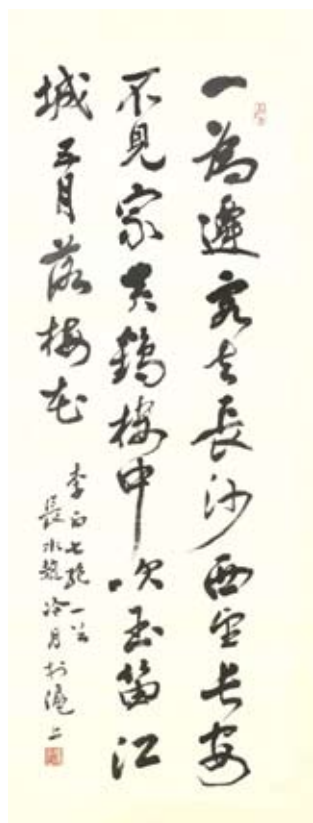 一為遷客去長沙西望長安
不見家黃鶴樓中吹玉笛江
城五月落梅花
李白七絕一首
長水冷月於滬上